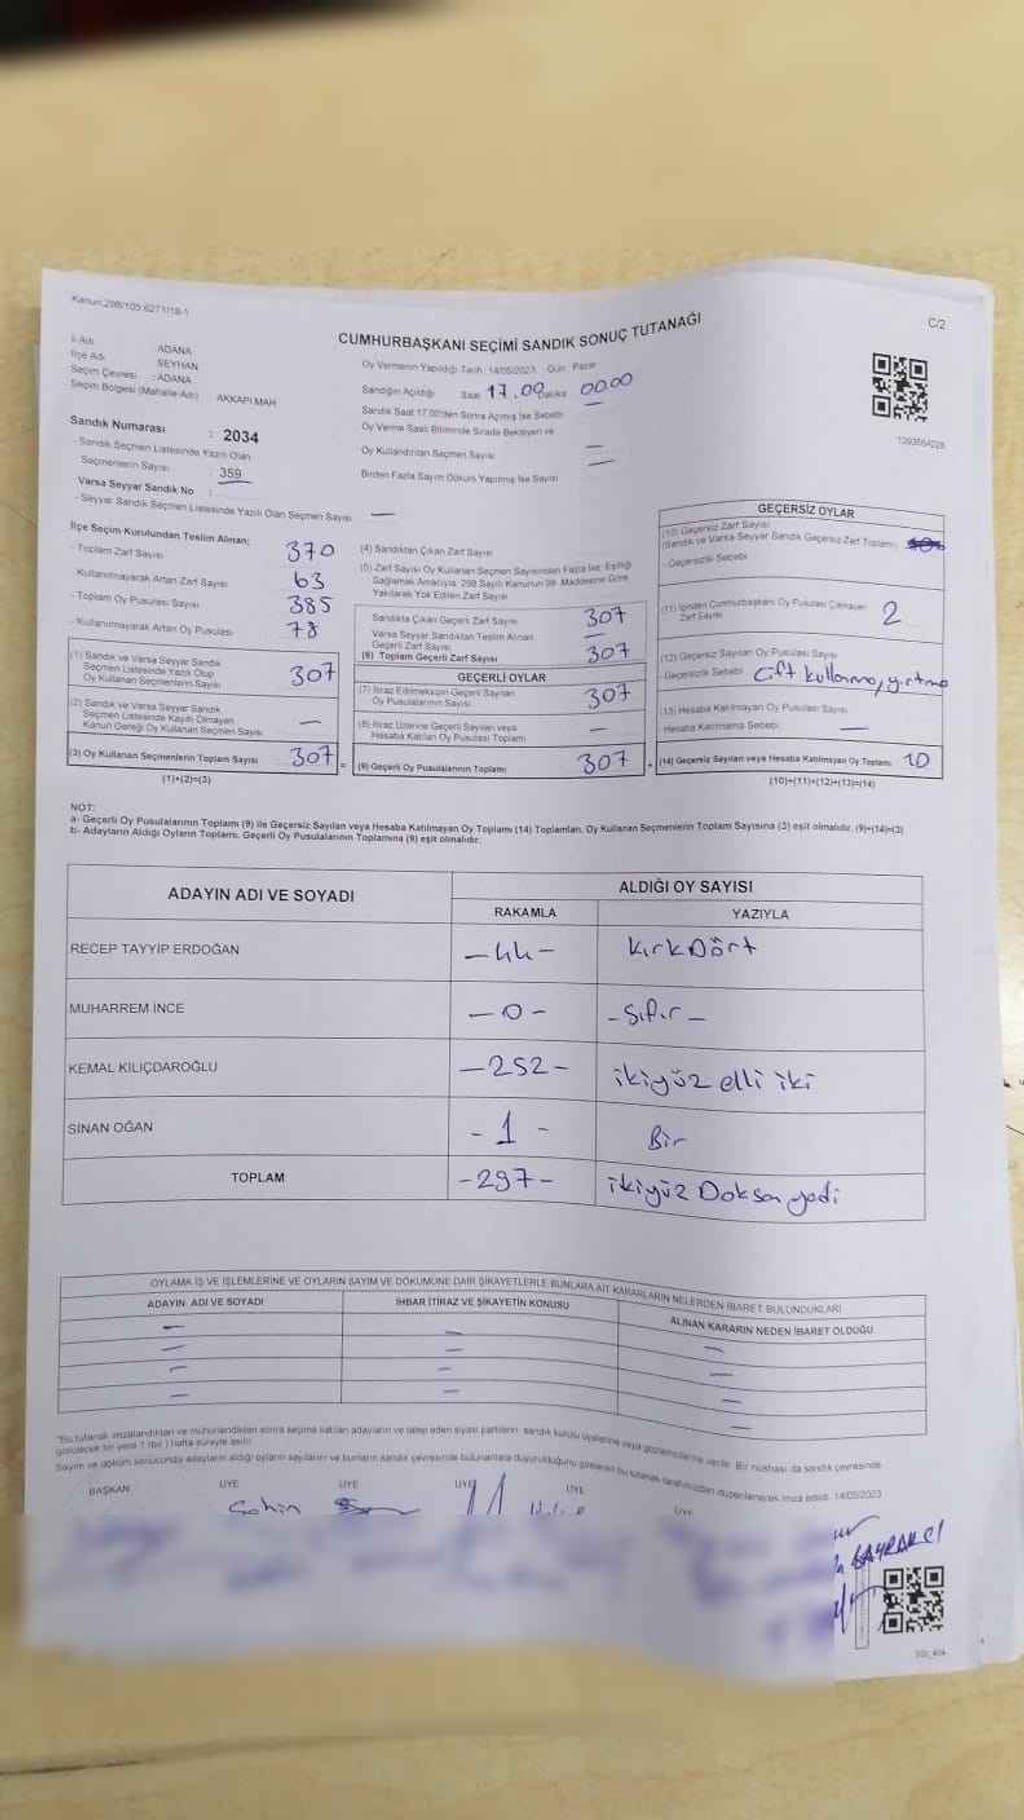 Kanun:298/105 6271/18-1
C/2
CUMHURBAŞKANI SEÇİMİ SANDIK SONUÇ TUTANAĞI
İl Adı : ADANA
İlçe Adı : SEYHAN
Seçim Çevresi : ADANA
Seçim Bölgesi (Mahalle Adı) : AKKAPI MAH
Oy Vermenin Yapıldığı Tarih: 14/05/2023 Gün: Pazar
Sandığın Açıldığı Saat 17.00 Dakika 00.00
Sandık Saat 17.00'den Sonra Açılmış İse Sebebi
Oy Verme Saati Bitiminde Sırada Bekleyen ve
Oy Kullandırılan Seçmen Sayısı —
Birden Fazla Sayım Döküm Yapılmış İse Sayısı —
Sandık Numarası : 2034
- Sandık Seçmen Listesinde Yazılı Olan
Seçmenlerin Sayısı : 359
Varsa Seyyar Sandık No :
- Seyyar Sandık Seçmen Listesinde Yazılı Olan Seçmen Sayısı —
İlçe Seçim Kurulundan Teslim Alınan:
- Toplam Zarf Sayısı 370
Kullanılmayarak Artan Zarf Sayısı 63
- Toplam Oy Pusulası Sayısı 385
- Kullanılmayarak Artan Oy Pusulası 78
(1) Sandık ve Varsa Seyyar Sandık
Seçmen Listesinde Yazılı Olup
Oy Kullanan Seçmenlerin Sayısı 307
(2) Sandık ve Varsa Seyyar Sandık
Seçmen Listesinde Kayıtlı Olmayan
Kanun Gereği Oy Kullanan Seçmen Sayısı —
(3) Oy Kullanan Seçmenlerin Toplam Sayısı 307
(1)+(2)=(3)
(4) Sandıktan Çıkan Zarf Sayısı
(5) Zarf Sayısı Oy Kullanan Seçmen Sayısından Fazla İse; Eşitliği
Sağlamak Amacıyla, 298 Sayılı Kanunun 98. Maddesine Göre
Yakılarak Yok Edilen Zarf Sayısı
Sandıkta Çıkan Geçerli Zarf Sayısı 307
Varsa Seyyar Sandıktan Teslim Alınan
Geçerli Zarf Sayısı —
(6) Toplam Geçerli Zarf Sayısı 307
GEÇERLİ OYLAR
(7) İtiraz Edilmeksizin Geçerli Sayılan
Oy Pusulalarının Sayısı 307
(8) İtiraz Üzerine Geçerli Sayılan veya
Hesaba Katılan Oy Pusulası Toplamı —
(9) Geçerli Oy Pusulalarının Toplamı 307
GEÇERSİZ OYLAR
(10) Geçersiz Zarf Sayısı
(Sandık ve Varsa Seyyar Sandık Geçersiz Zarf Toplamı)
- Geçersizlik Sebebi
(11) İçinden Cumhurbaşkanı Oy Pusulası Çıkmayan
Zarf Sayısı 2
(12) Geçersiz Sayılan Oy Pusulası Sayısı
Geçersizlik Sebebi Çift kullanma, yırtma
(13) Hesaba Katılmayan Oy Pusulası Sayısı
Hesaba Katılmama Sebebi —
(14) Geçersiz Sayılan veya Hesaba Katılmayan Oy Toplamı 10
(10)+(11)+(12)+(13)=(14)
NOT:
a- Geçerli Oy Pusulalarının Toplamı (9) ile Geçersiz Sayılan veya Hesaba Katılmayan Oy Toplamı (14) Toplamları, Oy Kullanan Seçmenlerin Toplam Sayısına (3) eşit olmalıdır. (9)+(14)=(3)
b- Adayların Aldığı Oyların Toplamı, Geçerli Oy Pusulalarının Toplamına (9) eşit olmalıdır.
ADAYIN ADI VE SOYADI
ALDIĞI OY SAYISI
RAKAMLA YAZIYLA
RECEP TAYYİP ERDOĞAN -44- KırkDört
MUHARREM İNCE -0- -Sıfır-
KEMAL KILIÇDAROĞLU -252- ikiyüz elli iki
SİNAN OĞAN -1- Bir
TOPLAM -297- ikiyüz Doksan yedi
OYLAMA İŞ VE İŞLEMLERİNE VE OYLARIN SAYIM VE DÖKÜMÜNE DAİR ŞİKAYETLERLE BUNLARA AİT KARARLARIN NELERDEN İBARET BULUNDUKLARI
ADAYIN ADI VE SOYADI
İHBAR İTİRAZ VE ŞİKAYETİN KONUSU
ALINAN KARARIN NEDEN İBARET OLDUĞU
BAŞKAN ÜYE ÜYE ÜYE ÜYE ÜYE
Şahin
BAYRAKCI